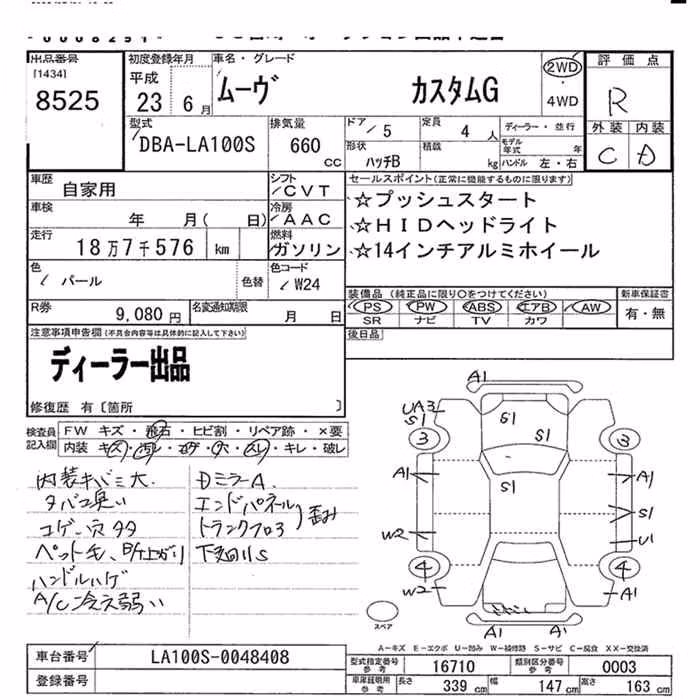 出品番号
[1434]
8525
初度登録年月
平成
23 6月
車名・グレード
ムーヴ カスタムG
2WD
・
4WD
評価点
R
外装 内装
C D
型式
DBA-LA100S
排気量
660
CC
ドア
/5
定員
4 人
形状
ハッチB
積載
kg
ディーラー・並行
モデル年式 年
ハンドル 左・右
車歴
自家用
シフト
CVT
車検
年 月( 日)
冷房
AAC
走行
18万7千576 km
燃料
ガソリン
色
パール
色替
色コード
W24
R券
9,080円
名変通知期限
月 日
セールスポイント(正常に機能するものに限ります)
☆プッシュスタート
☆HIDヘッドライト
☆14インチアルミホイール
装備品(純正品に限り○をつけてください)
PS PW ABS エアB AW
SR ナビ TV カワ
新車保証書
有・無
後日品
注意事項申告欄(不具合内容等は具体的に記入して下さい)
ディーラー出品
修復歴 有〔箇所 〕
検査員
記入欄
FW キズ・飛石・ヒビ割・リペア跡・×要
内装 キズ・ヨゴレ・コゲ・穴・スレ・キレ・破レ
内装キバミ大
タバコ臭い
コゲ・穴多々
ペット毛、
ハンドルハゲ
A/C冷え弱い
DミラーA
エンドパネル
トランクフロア
歪み
下廻りS
A1
UA3
S1
S1
S1
S1
3
3
A1
A1
S1
W2
U1
4
4
W2
A1
A1
A1
スペア
A-キズ E-エクボ U-凹み W-補修跡 S-サビ C-腐食 XX-交換済
車台番号
LA100S-0048408
登録番号
型式指定番号
参考
16710
類別区分番号
参考
0003
車庫証明用
参考
長さ
339 cm
幅
147 cm
高さ
163 cm